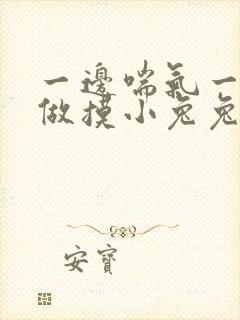 一邊喘氣一
做摸小兔兔
安寶